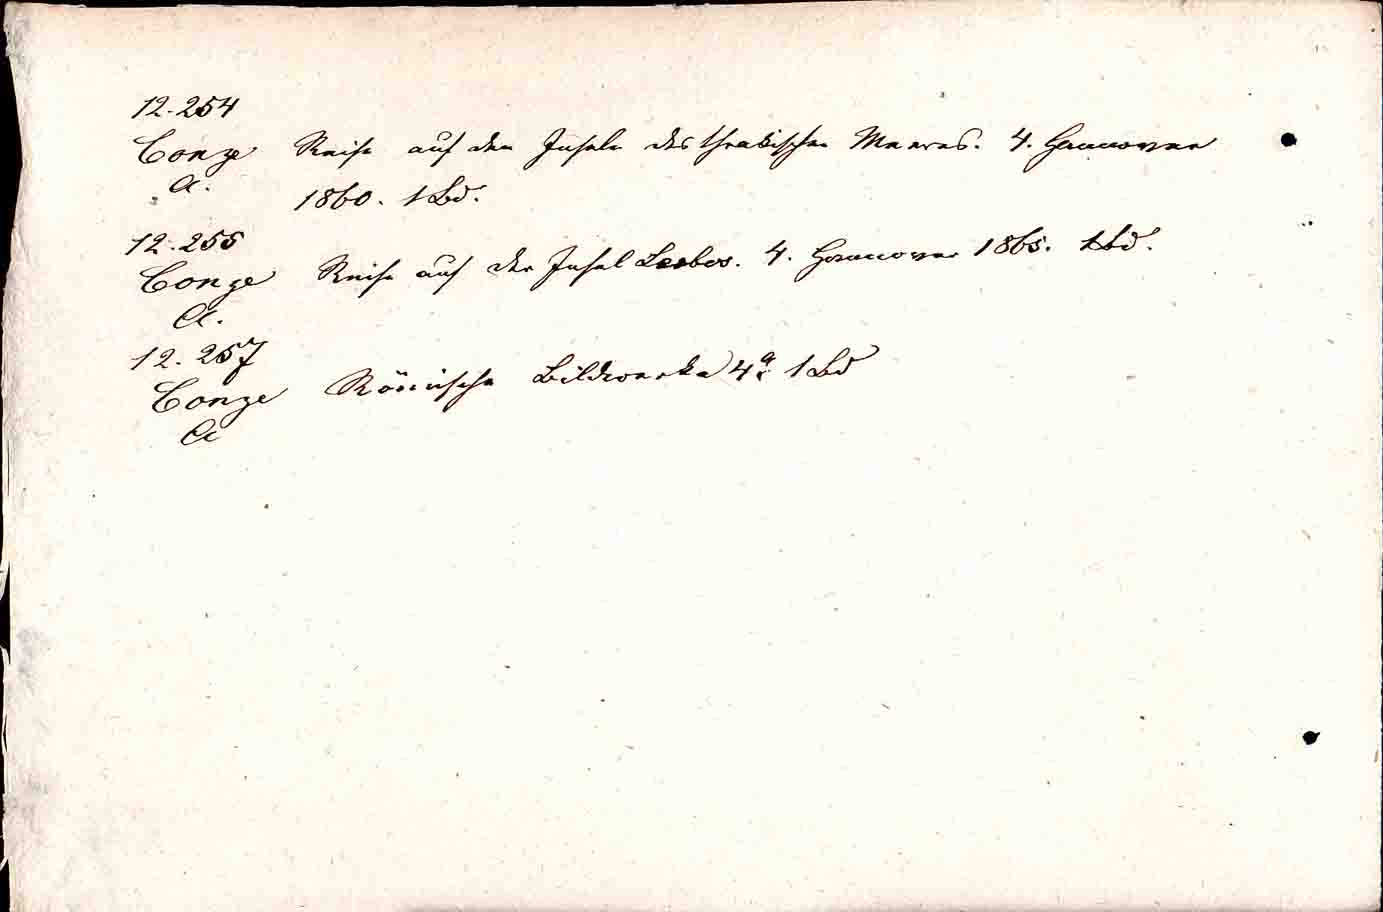 12.254
Conze Reise auf den Inseln des thrakischen Meeres. 4. Hannover
A. 1860. 1 Bd.
12.255
Conze Reise auf der Insel Lesbos. 4. Hannover 1865. 1 Bd.
A.
12.257
Conze Römische Bildwerke 4º. 1 Bd
A